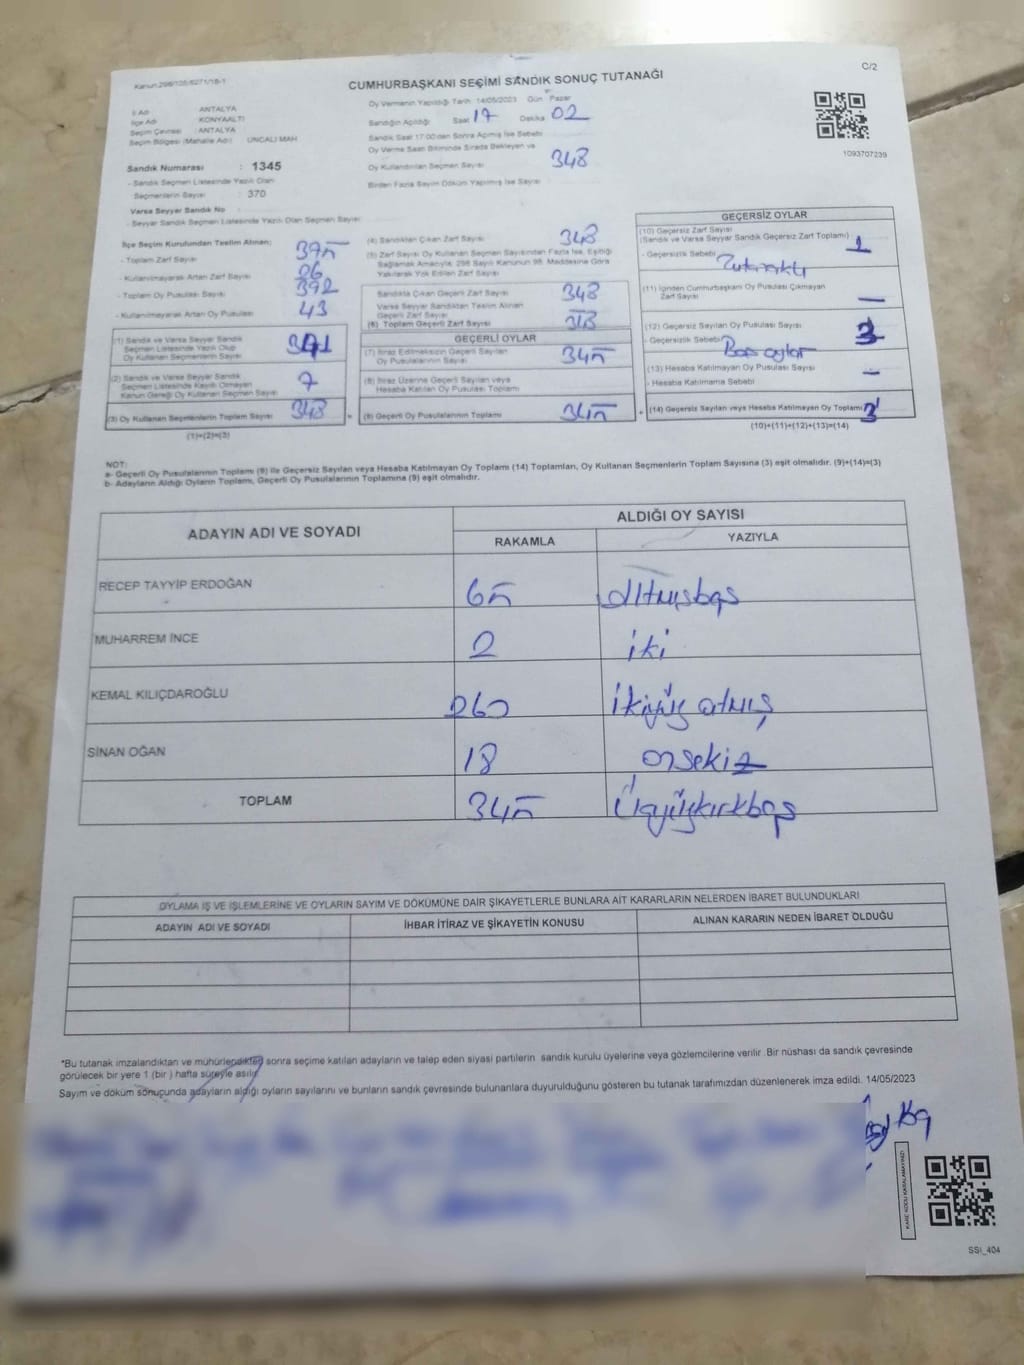 Kanun:298/105/6271/18-1
CUMHURBAŞKANI SEÇİMİ SANDIK SONUÇ TUTANAĞI
C/2
İl Adı ANTALYA
İlçe Adı KONYAALTI
Seçim Çevresi : ANTALYA
Seçim Bölgesi (Mahalle Adı) UNCALI MAH
Sandık Numarası : 1345
- Sandık Seçmen Listesinde Yazılı Olan
Seçmenlerin Sayısı : 370
Varsa Seyyar Sandık No
- Seyyar Sandık Seçmen Listesinde Yazılı Olan Seçmen Sayısı
Oy Vermenin Yapıldığı Tarih 14/05/2023 Gün Pazar
Sandığın Açıldığı Saat 17 Dakika 02
Sandık Saat 17:00'den Sonra Açılmış İse Sebebi
Oy Verme Saati Bitiminde Sırada Bekleyen ve
Oy Kullandırılan Seçmen Sayısı 348
Birden Fazla Sayım Döküm Yapılmış İse Sayısı
1093707239
İlçe Seçim Kurulundan Teslim Alınan;
- Toplam Zarf Sayısı 375
- Kullanılmayarak Artan Zarf Sayısı 26
- Toplam Oy Pusulası Sayısı 392
- Kullanılmayarak Artan Oy Pusulası 43
(1) Sandık ve Varsa Seyyar Sandık
Seçmen Listesinde Yazılı Olup
Oy Kullanan Seçmenlerin Sayısı 341
(2) Sandık ve Varsa Seyyar Sandık
Seçmen Listesinde Kayıtlı Olmayan
Kanun Gereği Oy Kullanan Seçmen Sayısı 7
(3) Oy Kullanan Seçmenlerin Toplam Sayısı 348
(1)+(2)=(3)
(4) Sandıktan Çıkan Zarf Sayısı 348
(5) Zarf Sayısı Oy Kullanan Seçmen Sayısından Fazla İse, Eşitliği
Sağlamak Amacıyla; 298 Sayılı Kanunun 98. Maddesine Göre
Yakılarak Yok Edilen Zarf Sayısı
Sandıkta Çıkan Geçerli Zarf Sayısı 348
Varsa Seyyar Sandıktan Teslim Alınan
Geçerli Zarf Sayısı
(6) Toplam Geçerli Zarf Sayısı
GEÇERLİ OYLAR
(7) İtiraz Edilmeksizin Geçerli Sayılan
Oy Pusulalarının Sayısı 345
(8) İtiraz Üzerine Geçerli Sayılan veya
Hesaba Katılan Oy Pusulası Toplamı
= (9) Geçerli Oy Pusulalarının Toplamı 345
GEÇERSİZ OYLAR
(10) Geçersiz Zarf Sayısı
(Sandık ve Varsa Seyyar Sandık Geçersiz Zarf Toplamı)
- Geçersizlik Sebebi
(11) İçinden Cumhurbaşkanı Oy Pusulası Çıkmayan
Zarf Sayısı —
(12) Geçersiz Sayılan Oy Pusulası Sayısı 3
- Geçersizlik Sebebi Boş oylar
(13) Hesaba Katılmayan Oy Pusulası Sayısı —
- Hesaba Katılmama Sebebi
+ (14) Geçersiz Sayılan veya Hesaba Katılmayan Oy Toplamı 3
(10)+(11)+(12)+(13)=(14)
NOT:
a- Geçerli Oy Pusulalarının Toplamı (9) ile Geçersiz Sayılan veya Hesaba Katılmayan Oy Toplamı (14) Toplamları, Oy Kullanan Seçmenlerin Toplam Sayısına (3) eşit olmalıdır. (9)+(14)=(3)
b- Adayların Aldığı Oyların Toplamı, Geçerli Oy Pusulalarının Toplamına (9) eşit olmalıdır.
ADAYIN ADI VE SOYADI
ALDIĞI OY SAYISI
RAKAMLA YAZIYLA
RECEP TAYYİP ERDOĞAN 65 altmışbeş
MUHARREM İNCE 2 iki
KEMAL KILIÇDAROĞLU 260 ikiyüz atmış
SİNAN OĞAN 18 onsekiz
TOPLAM 345 Üçyüzkırkbeş
OYLAMA İŞ VE İŞLEMLERİNE VE OYLARIN SAYIM VE DÖKÜMÜNE DAİR ŞİKAYETLERLE BUNLARA AİT KARARLARIN NELERDEN İBARET BULUNDUKLARI
ADAYIN ADI VE SOYADI İHBAR İTİRAZ VE ŞİKAYETİN KONUSU ALINAN KARARIN NEDEN İBARET OLDUĞU
*Bu tutanak imzalandıktan ve mühürlendikten sonra seçime katılan adayların ve talep eden siyasi partilerin sandık kurulu üyelerine veya gözlemcilerine verilir .Bir nüshası da sandık çevresinde
görülecek bir yere 1 (bir ) hafta süreyle asılır.
Sayım ve döküm sonuçunda adayların aldığı oyların sayılarını ve bunların sandık çevresinde bulunanlara duyurulduğunu gösteren bu tutanak tarafımızdan düzenlenerek imza edildi. 14/05/2023
KARE KODU KARALAMAYINIZ!
SSI_404